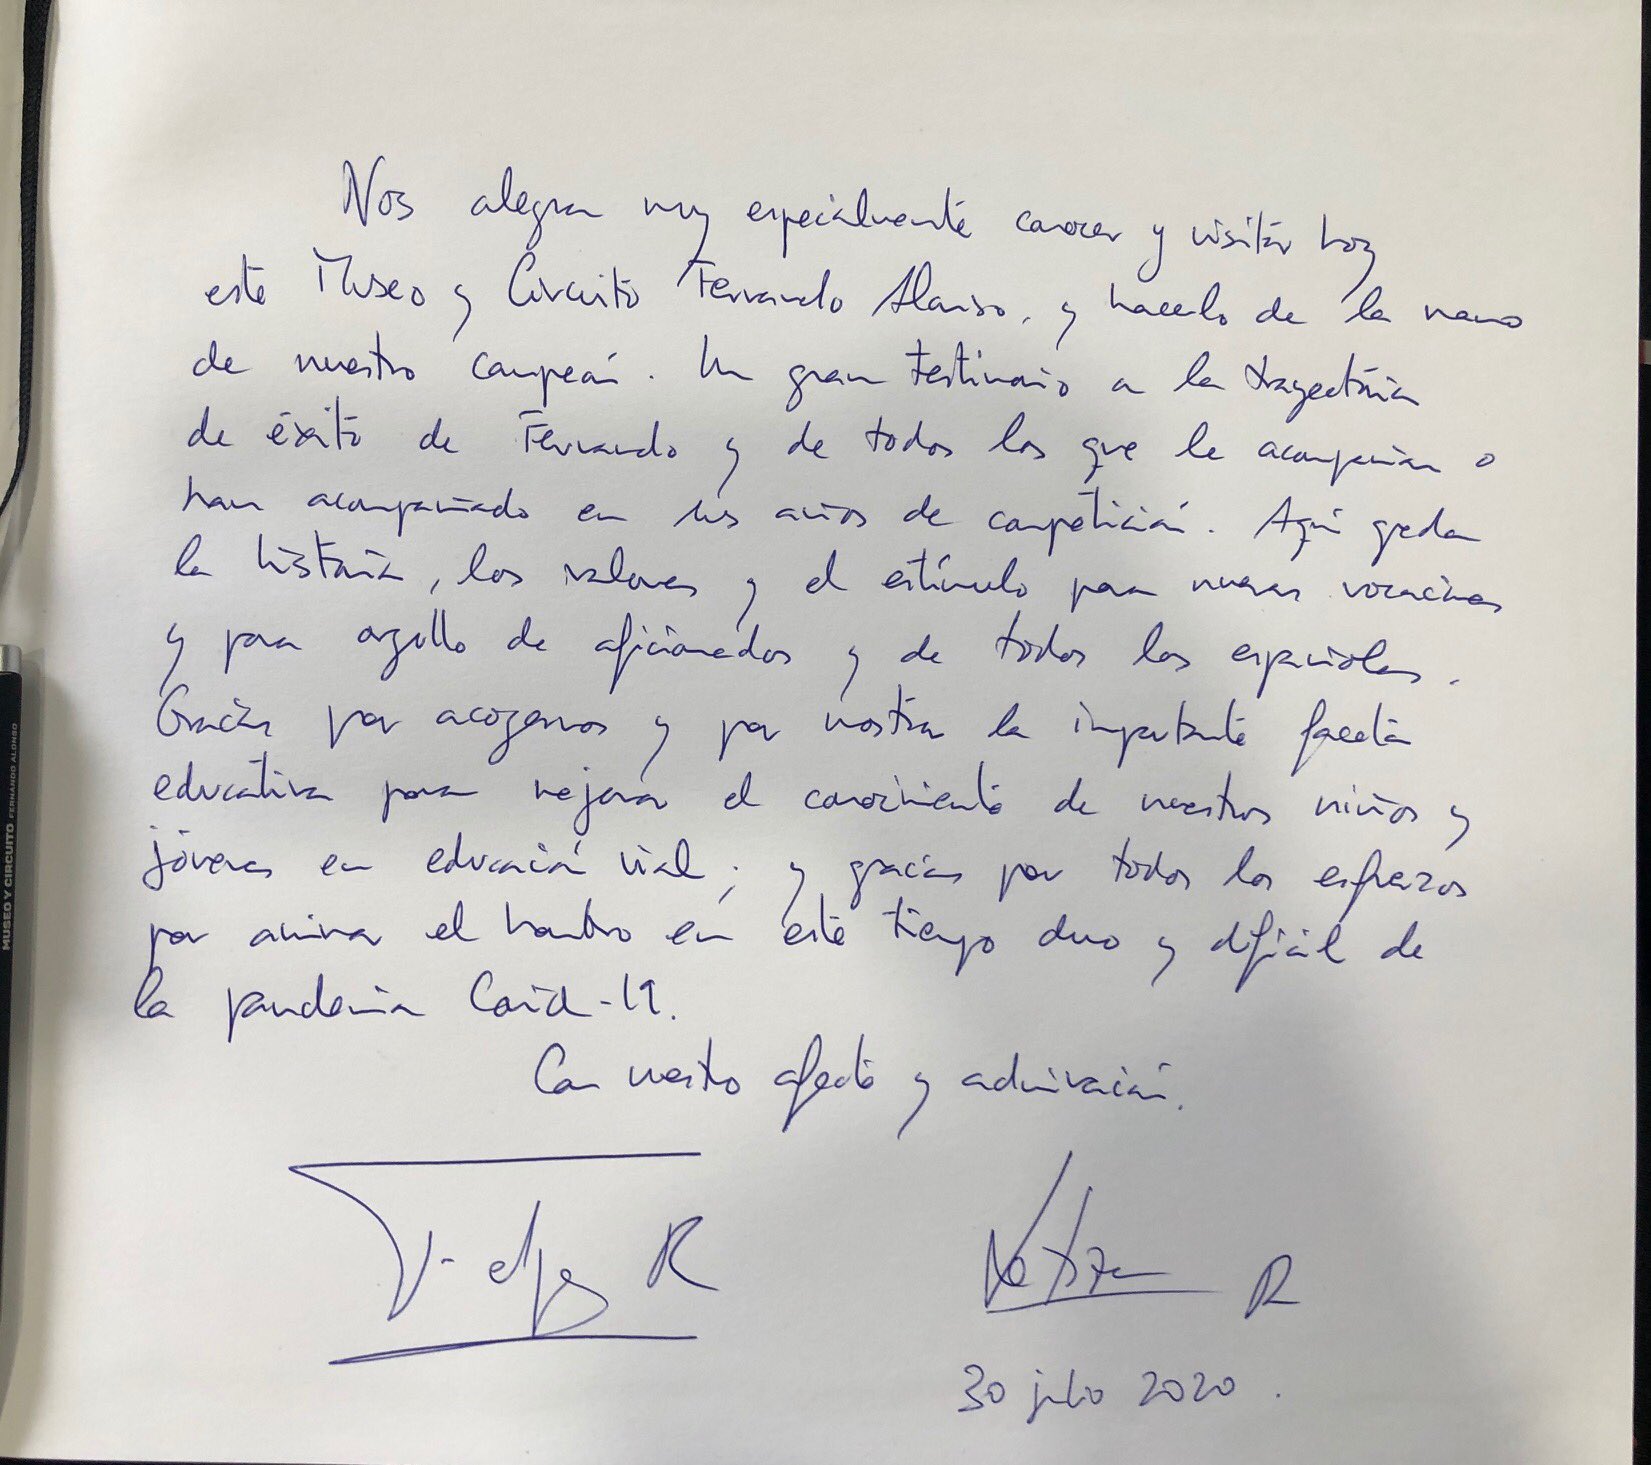 Nos alegra muy especialmente conocer y visitar hoy
este Museo y Circuito Fernando Alonso, y hacerlo de la mano
de nuestro campeón. Un gran testimonio a la trayectoria
de éxito de Fernando y de todos los que le acompañan o
han acompañado en sus años de competición. Aquí queda
la historia, los valores y el estímulo para nuevas vocaciones
y para orgullo de aficionados y de todos los españoles.
Gracias por acogernos y por mostrar la importante faceta
educativa para mejorar el conocimiento de nuestros niños y
jóvenes en educación vial; y gracias por todos los esfuerzos
por arrimar el hombro en este tiempo duro y difícil de
la pandemia Covid-19.
Con nuestro afecto y admiración.
Felipe R
Letizia R
30 julio 2020.
MUSEO Y CIRCUITO FERNANDO ALONSO